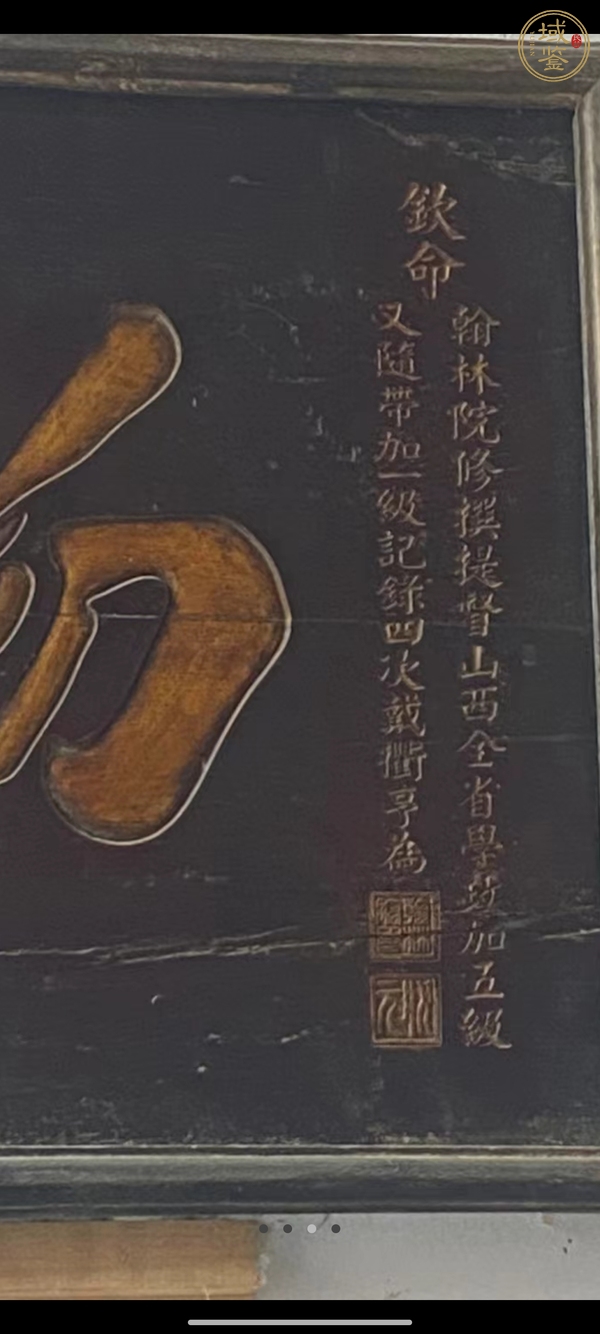 欽命
翰林院修撰提督山西全省學政加五級
又隨帶加一級記錄四次戴衢亨為
域鉴